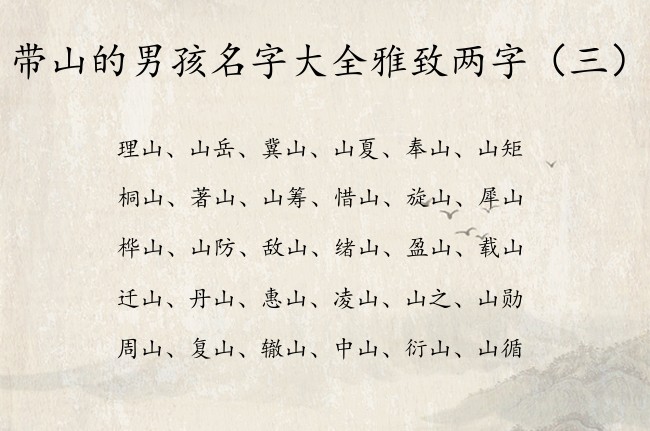 带山的男孩名字大全雅致两字（三）
理山、山岳、冀山、山夏、奉山、山矩
桐山、著山、山筹、惜山、旋山、犀山
桦山、山防、敌山、绪山、盈山、载山
迁山、丹山、惠山、凌山、山之、山勋
周山、复山、辙山、中山、衍山、山循